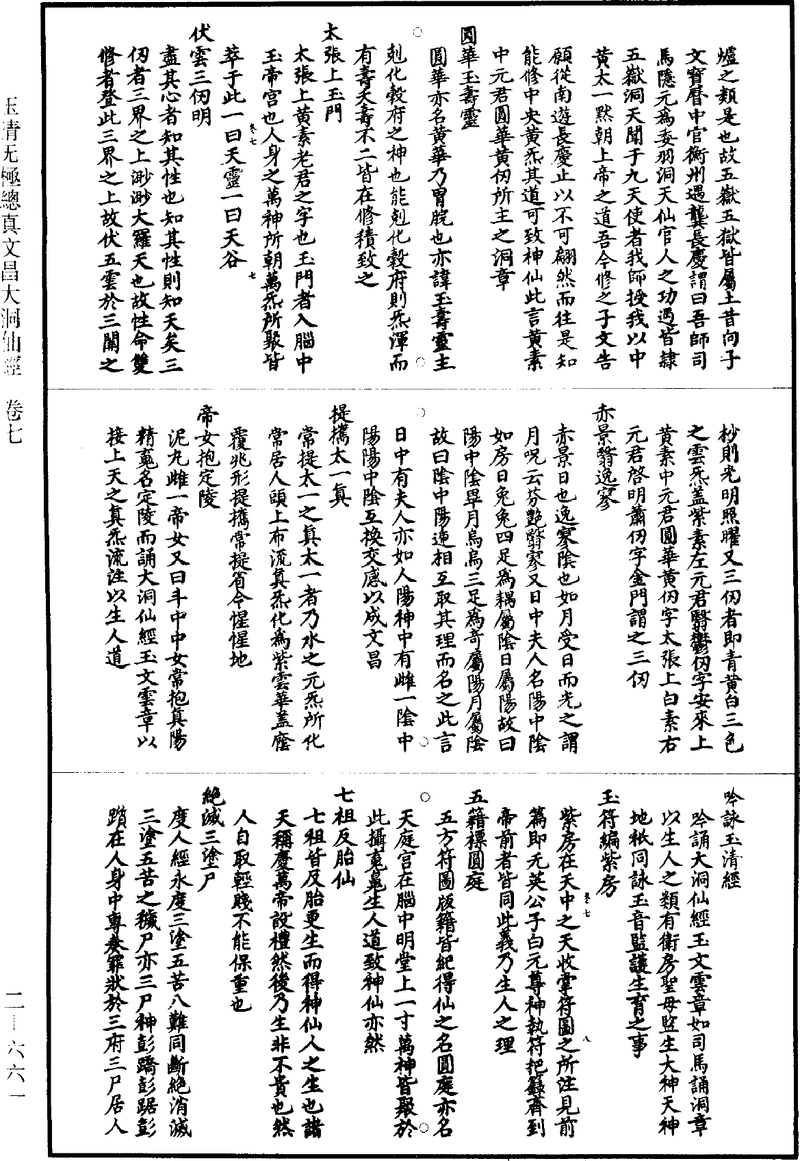 爐之類是也故五嶽五獄皆屬土昔向子
文寶曆中官衡州遇龔長慶謂曰吾師司
馬隱元爲委羽洞天仙官人之功過皆隸
五嶽洞天聞于九天使者我師授我以中
黄太一黙朝上帝之道吾今修之子文告
願從南遊長慶止以不可翩然而往是知
能修中央黄炁其道可致神仙此言黄素
中元君圓華黄仞所主之洞章
圓華玉壽靈
圓華亦名黄華乃胃脘也亦諱玉壽靈主
剋化榖府之神也能剋化榖府則炁渾而
有壽夭壽不二皆在修積致之
太張上玉門
太張上黄素老君之字也玉門者入腦中
玉帝宫也人身之萬神所朝萬炁所聚皆
萃于此一曰天靈一曰天谷
卷七 七
伏雲三仞明
盡其心者知其性也知其性則知天矣三
仞者三界之上渺渺大羅天也故性命雙
修者登此三界之上故伏五雲於三關之
杪則光明照曜又三仞者即青黄白三色
之雲炁蓋紫素左元君翳鬱仞字安來上
黄素中元君圓華黄仞字太張上白素右
元君啓明蕭仞字金門謂之三仞
赤景翳逸寥
赤景日也逸寥陰也如月受日而光之謂
月呪云芬艷翳寥又日中夫人名陽中陰
如房日兔兔四足爲耦屬陰日屬陽故曰
陽中陰畢月烏烏三足爲奇屬陽月屬陰
故曰陰中陽連相互取其理而名之此言
日中有夫人亦如人陽神中有雌一陰中
陽陽中陰互換交感以成文昌
提攜太一真
常提太一之真太一者乃水之元炁所化
常居人頭上布流真炁化爲紫雲華蓋廕
覆兆形提攜常提省令惺惺地
帝女抱定陵
泥丸雌一帝女又曰斗中中女常抱真陽
精䰟名定陵而誦大洞仙經玉文雲章以
接上天之真炁流注以生人道
吟詠玉清經
吟誦大洞仙經玉文雲章如司馬誦洞章
以生人之類有衛房聖母監生大神天神
地祇同詠玉音監護生育之事
玉符編紫房
紫房在天中之天收掌符圖之所注見前
卷七 八
篇即元英公子白元尊神執符把籙齎到
帝前者皆同此義乃生人之理
五籍標圓庭
五方符圖版籍皆紀得仙之名圓庭亦名
天庭宫在腦中明堂上一寸萬神皆聚於
此攝䰟䰟生人道致神仙亦然
七祖反胎仙
七祖皆反胎更生而得神仙人之生也諸
天稱慶萬帝設禮然後乃生非不貴也然
人自取輕賤不能保重也
絶滅三塗尸
度人經永度三塗五苦八難同斷絶消滅
三塗五苦之穢尸亦三尸神彭蹻彭踞彭
躓在人身中專奏罪狀於三府三尸居人
玉清无極總真文昌大洞仙經 卷七
二—六六一